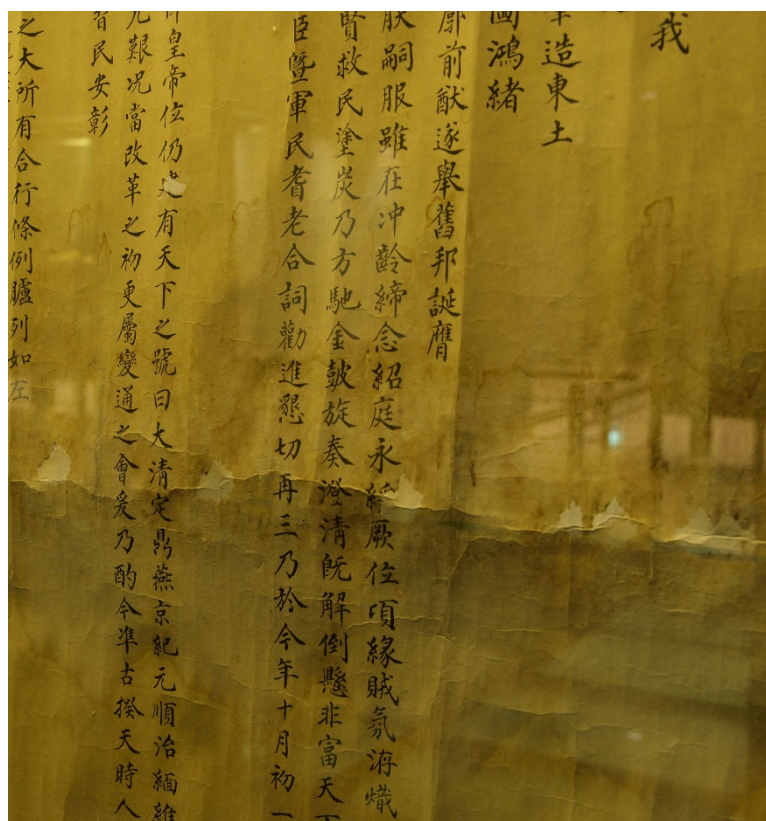 我
造東土
國鴻緒
廓前猷遂舉舊邦誕膺
朕嗣服雖在冲齡締念紹庭永綏厥位頃緣賊氛洊熾
賢救民塗炭乃方馳金鼓旋奏澄清旣解倒懸非富天下
臣暨軍民耆老合詞勸進懇切再三乃於今年十月初一
皇帝位仍建有天下之號曰大清定鼎燕京紀元順治緬維
艱況當改革之初更屬變通之會爰乃酌今準古揆天時人
習民安彰
之大所有合行條例臚列如左